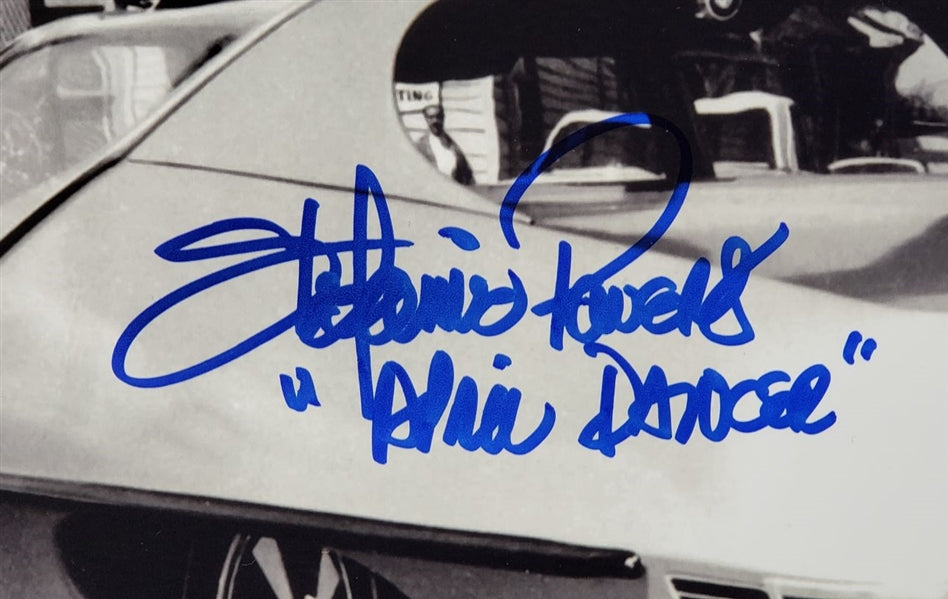 TING
Stefanie Powers
"April Dancer"